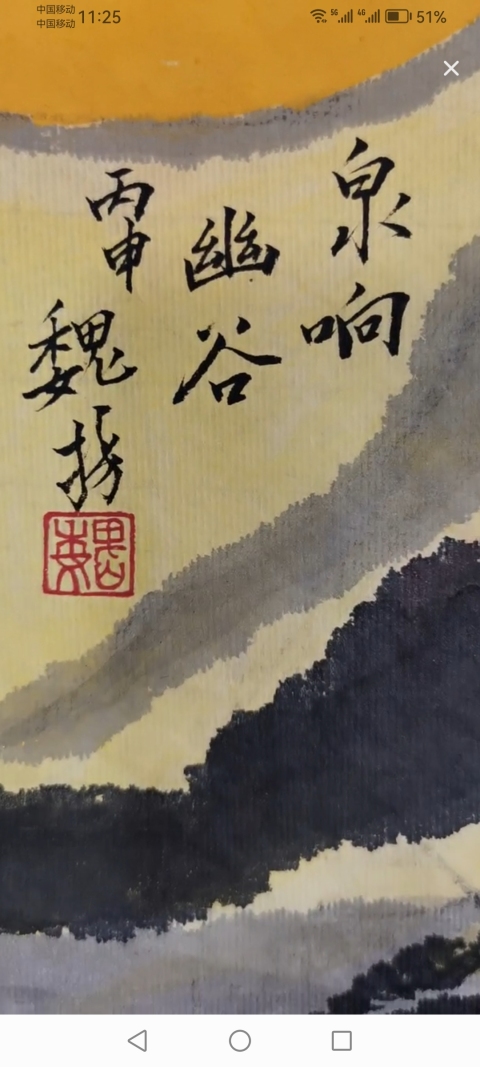 中国移动
中国移动
11:25
5G
4G
51%
泉响
幽谷
丙申
魏